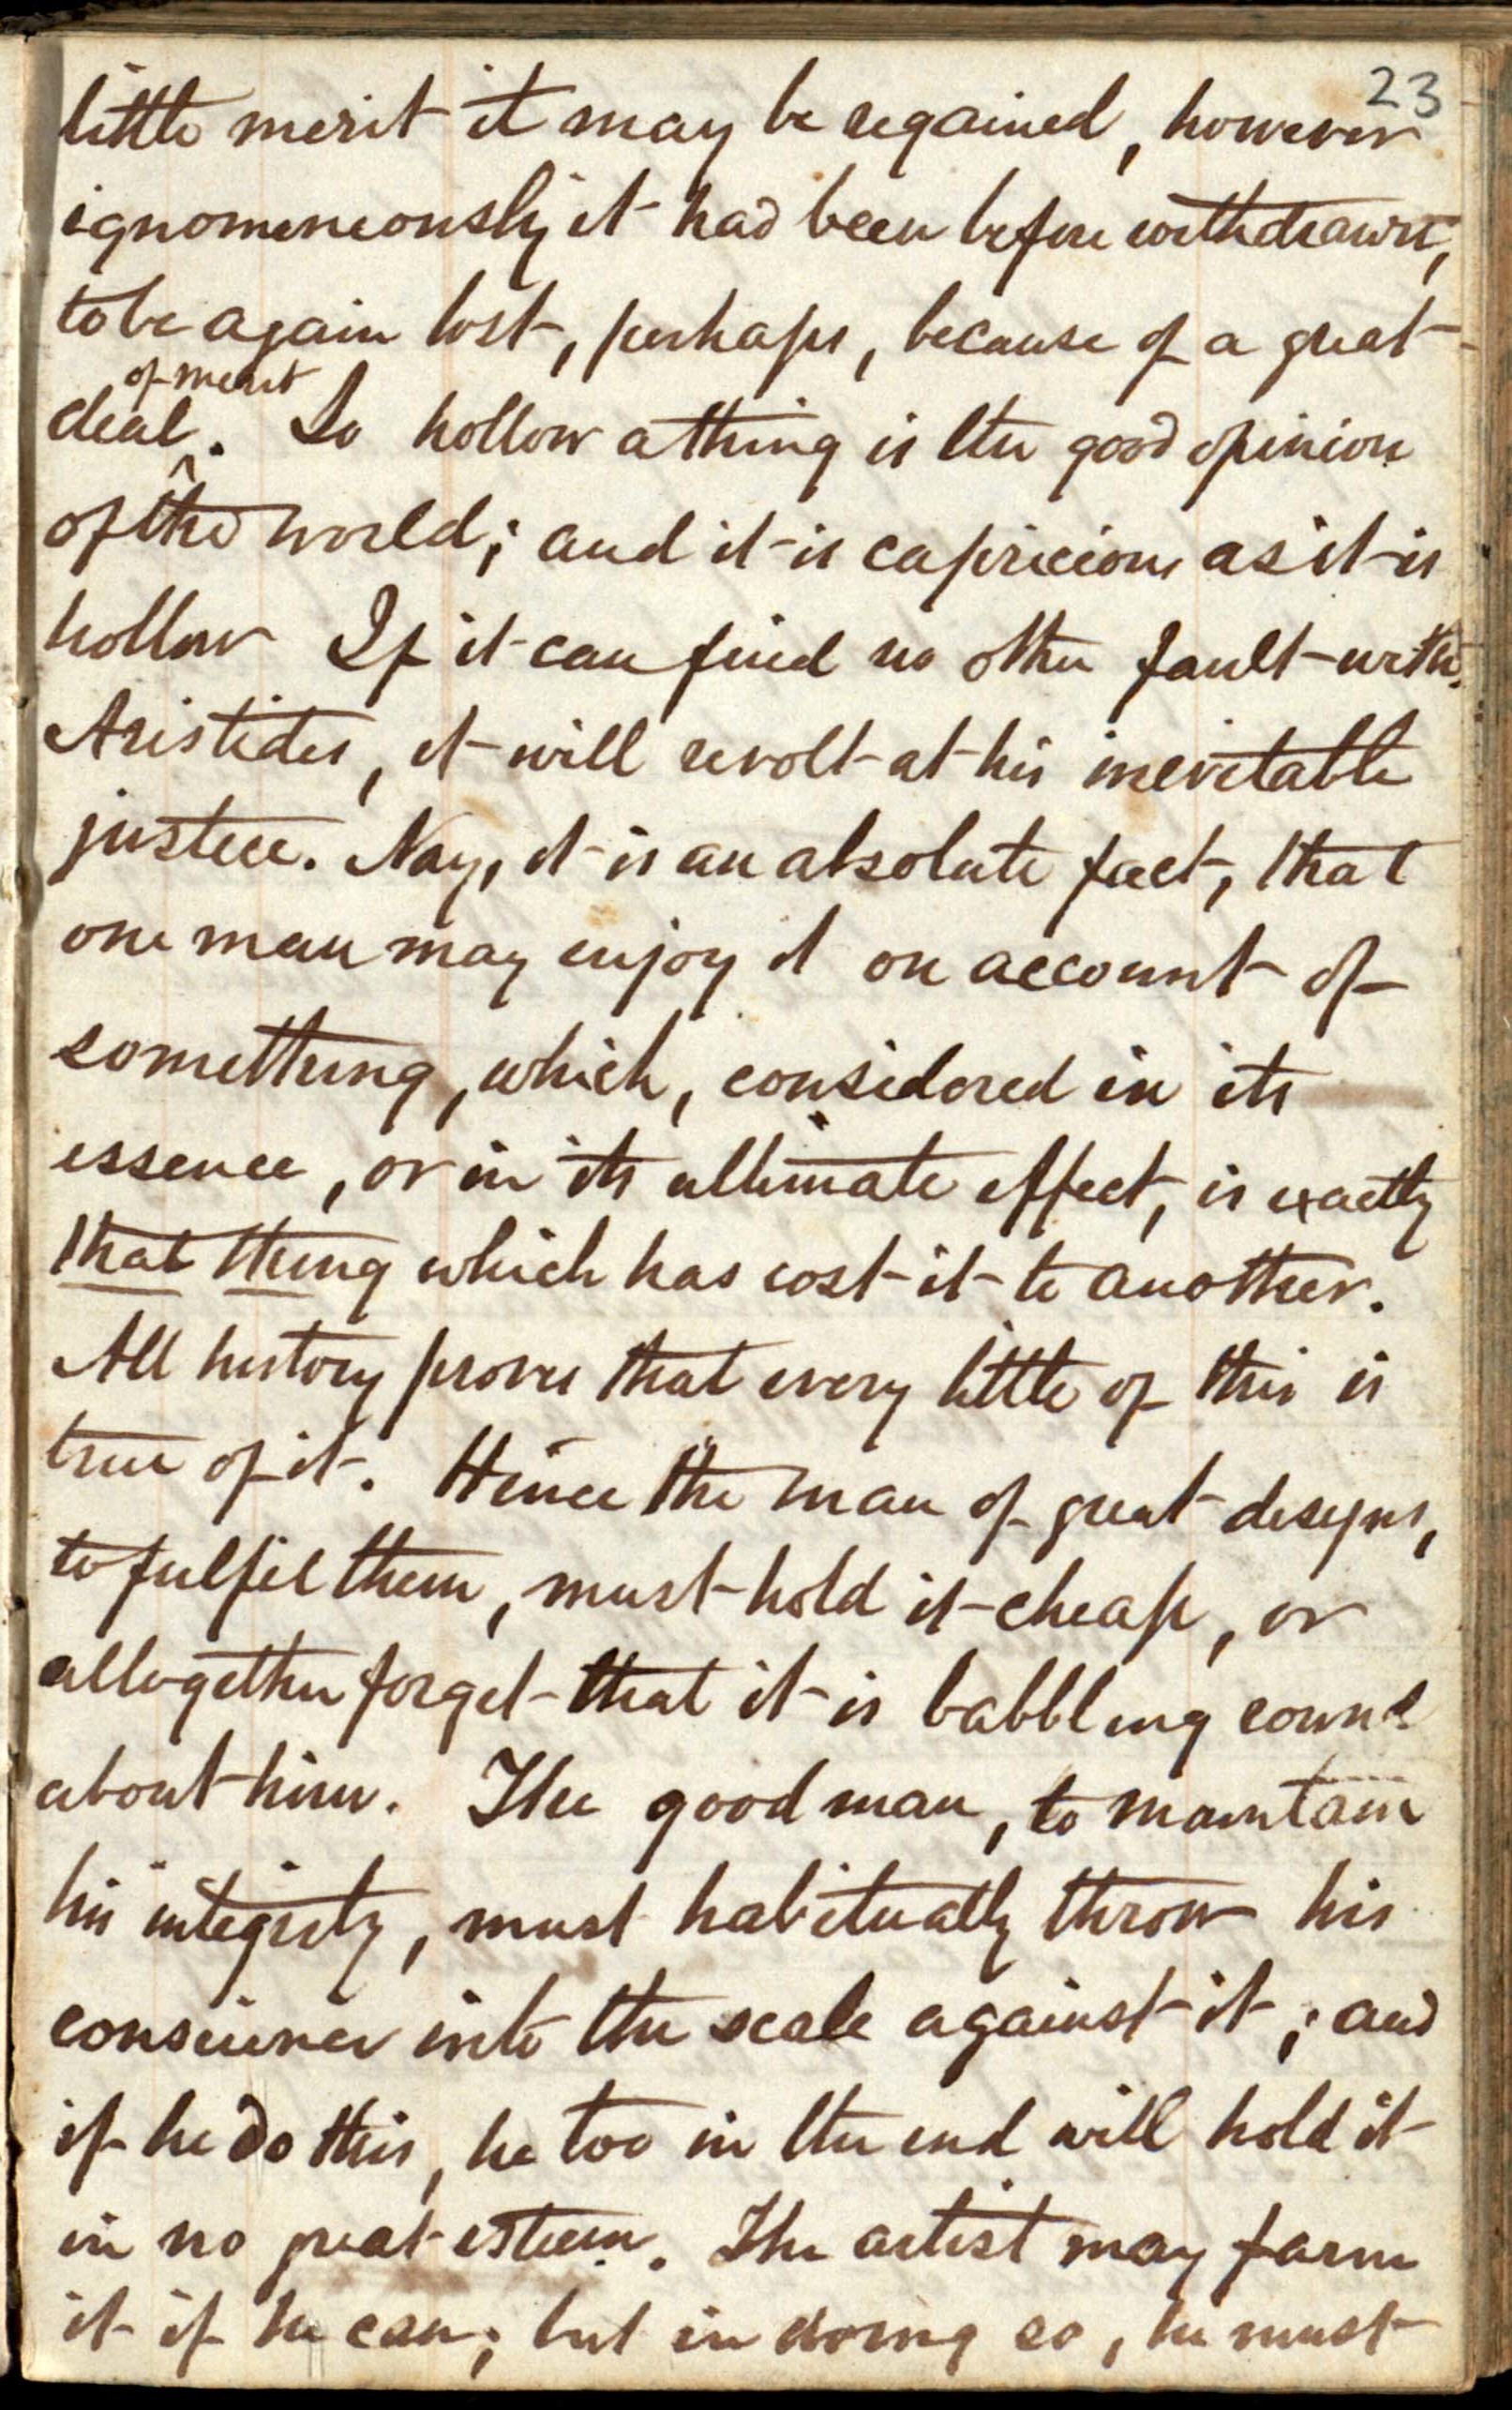 23
little merit it may be regained, however
ignomeneously it had been before withdrawn,
to be again lost, perhaps, because of a great
of merit
deal. So hollow a thing is the good opinion
of the world; and it is capricious as it is
hollow If it can find no other fault with
Aristides, it will revolt at his inevitable
justice. Nay, it is an absolute fact, that
one man may enjoy it on account of
something, which, considered in its
essence, or in its ultimate effect, is exactly
that thing which has cost it to another.
All history proves that every tittle of this is
true of it. Hence the man of great designs,
to fulfil them, must hold it cheap, or
altogether forget that it is babbling
about him. The good man, to maintain
his integrity, must habitually throw his
conscience into the scale against it; and
if he do this, he too in the end will hold it
in no great esteem. The artist may farm
it if he can; but in doing so, he must